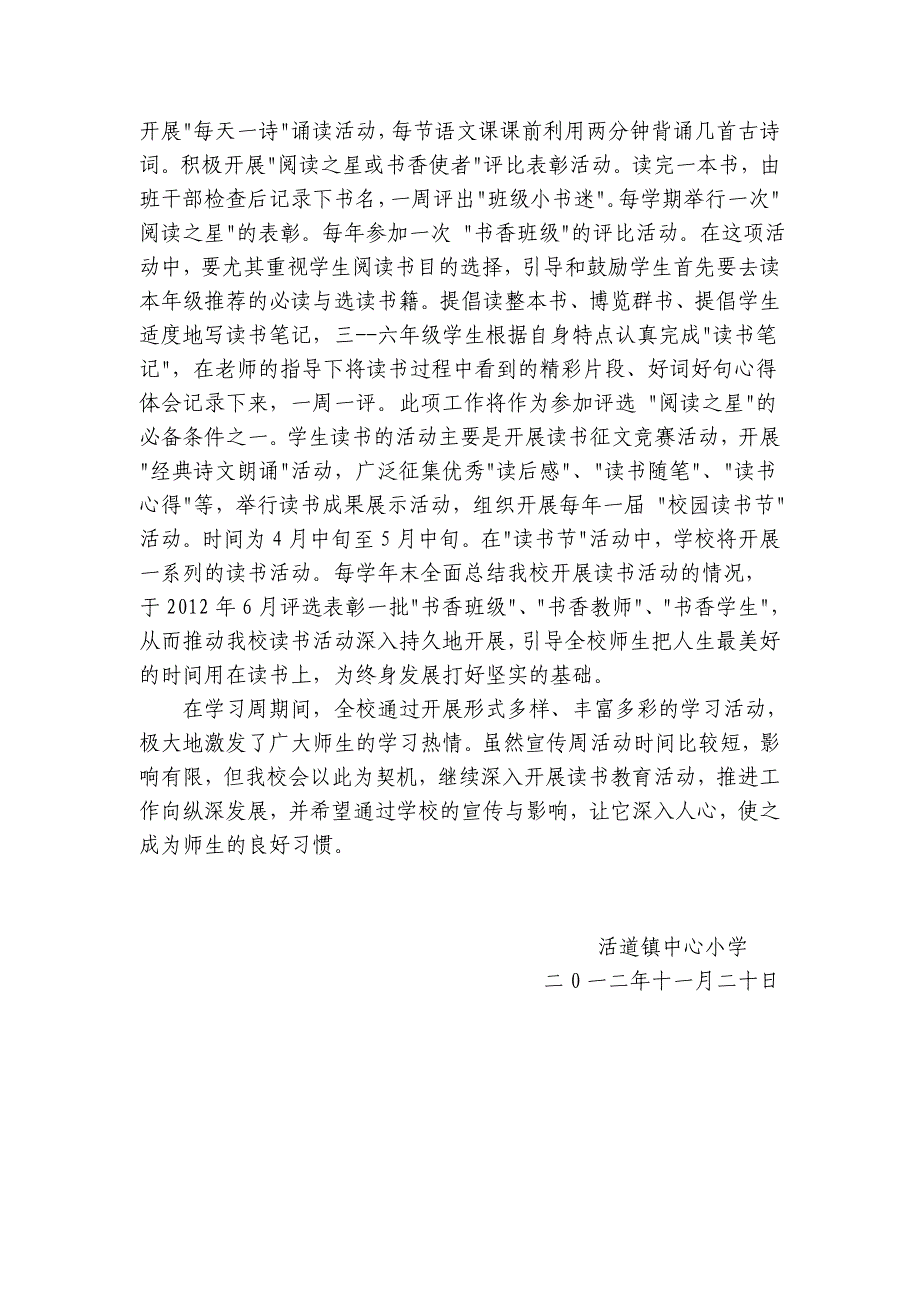 开展"每天一诗"诵读活动，每节语文课课前利用两分钟背诵几首古诗
词。积极开展"阅读之星或书香使者"评比表彰活动。读完一本书，由
班干部检查后记录下书名，一周评出"班级小书迷"。每学期举行一次"
阅读之星"的表彰。每年参加一次 "书香班级"的评比活动。在这项活
动中，要尤其重视学生阅读书目的选择，引导和鼓励学生首先要去读
本年级推荐的必读与选读书籍。提倡读整本书、博览群书、提倡学生
适度地写读书笔记，三--六年级学生根据自身特点认真完成"读书笔
记"，在老师的指导下将读书过程中看到的精彩片段、好词好句心得
体会记录下来，一周一评。此项工作将作为参加评选 "阅读之星"的
必备条件之一。学生读书的活动主要是开展读书征文竞赛活动，开展
"经典诗文朗诵"活动，广泛征集优秀"读后感"、"读书随笔"、"读书
心得"等，举行读书成果展示活动，组织开展每年一届 "校园读书节"
活动。时间为 4 月中旬至 5 月中旬。在"读书节"活动中，学校将开展
一系列的读书活动。每学年末全面总结我校开展读书活动的情况，
于 2012 年 6 月评选表彰一批"书香班级"、"书香教师"、"书香学生"，
从而推动我校读书活动深入持久地开展，引导全校师生把人生最美好
的时间用在读书上，为终身发展打好坚实的基础。
在学习周期间，全校通过开展形式多样、丰富多彩的学习活动，
极大地激发了广大师生的学习热情。虽然宣传周活动时间比较短，影
响有限，但我校会以此为契机，继续深入开展读书教育活动，推进工
作向纵深发展，并希望通过学校的宣传与影响，让它深入人心，使之
成为师生的良好习惯。
活道镇中心小学
二 0 一二年十一月二十日